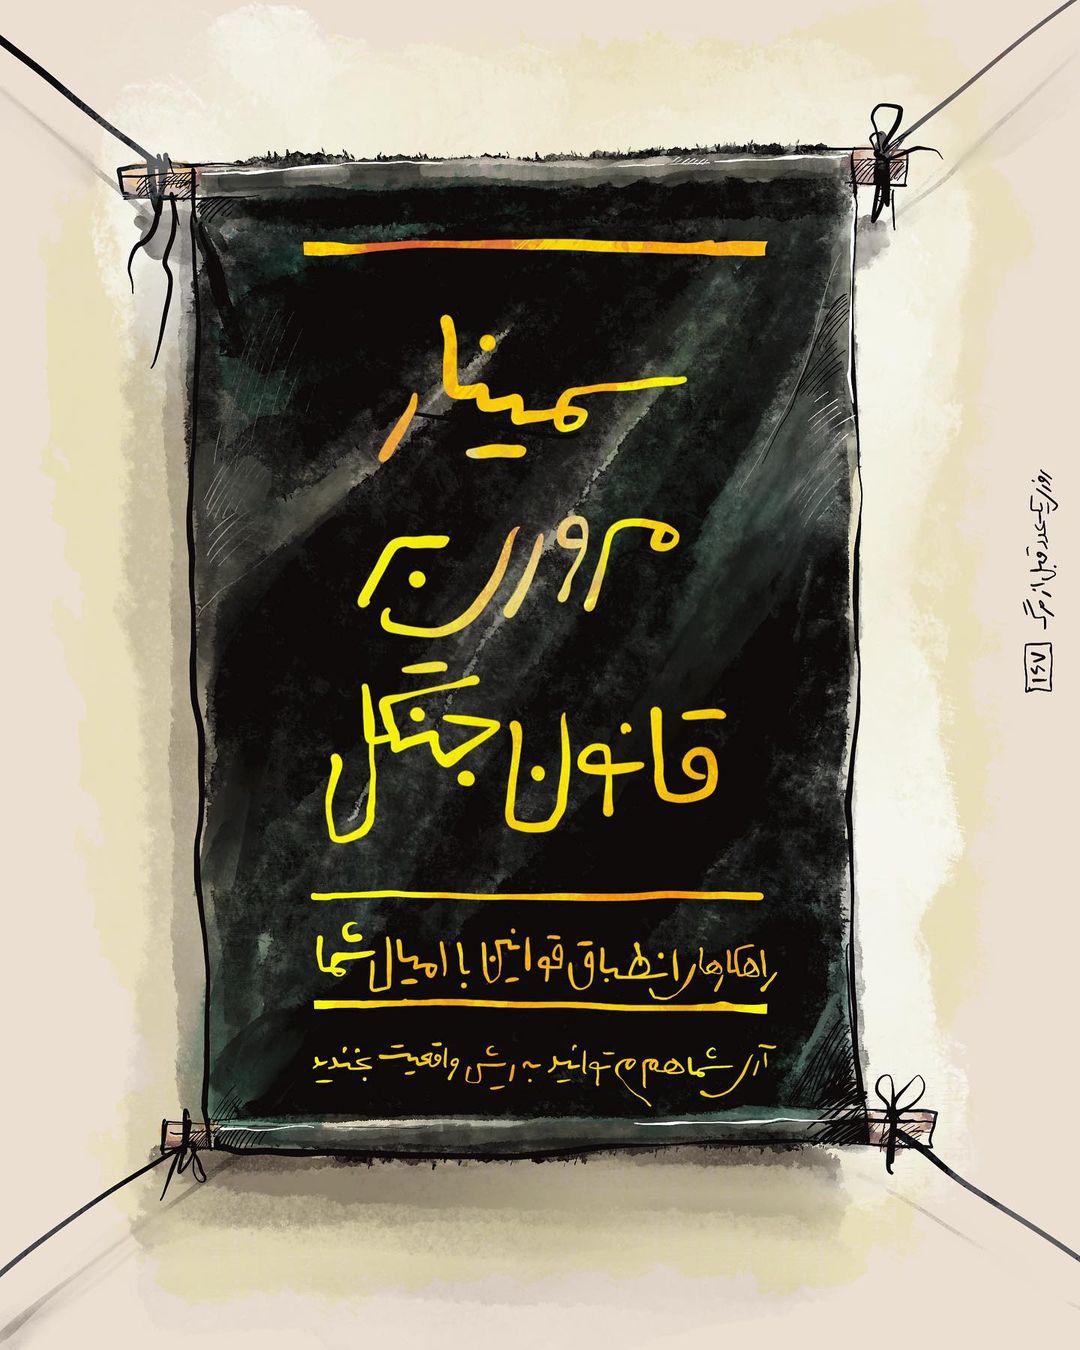 سمینار
مروری بر
قانون جنگل
راهکارهای انطباق قوانین با امیال شما
آری شما هم می توانید به ریش واقعیت بخندید
روزی یک عدد قبل از مرگ
۱۶۷